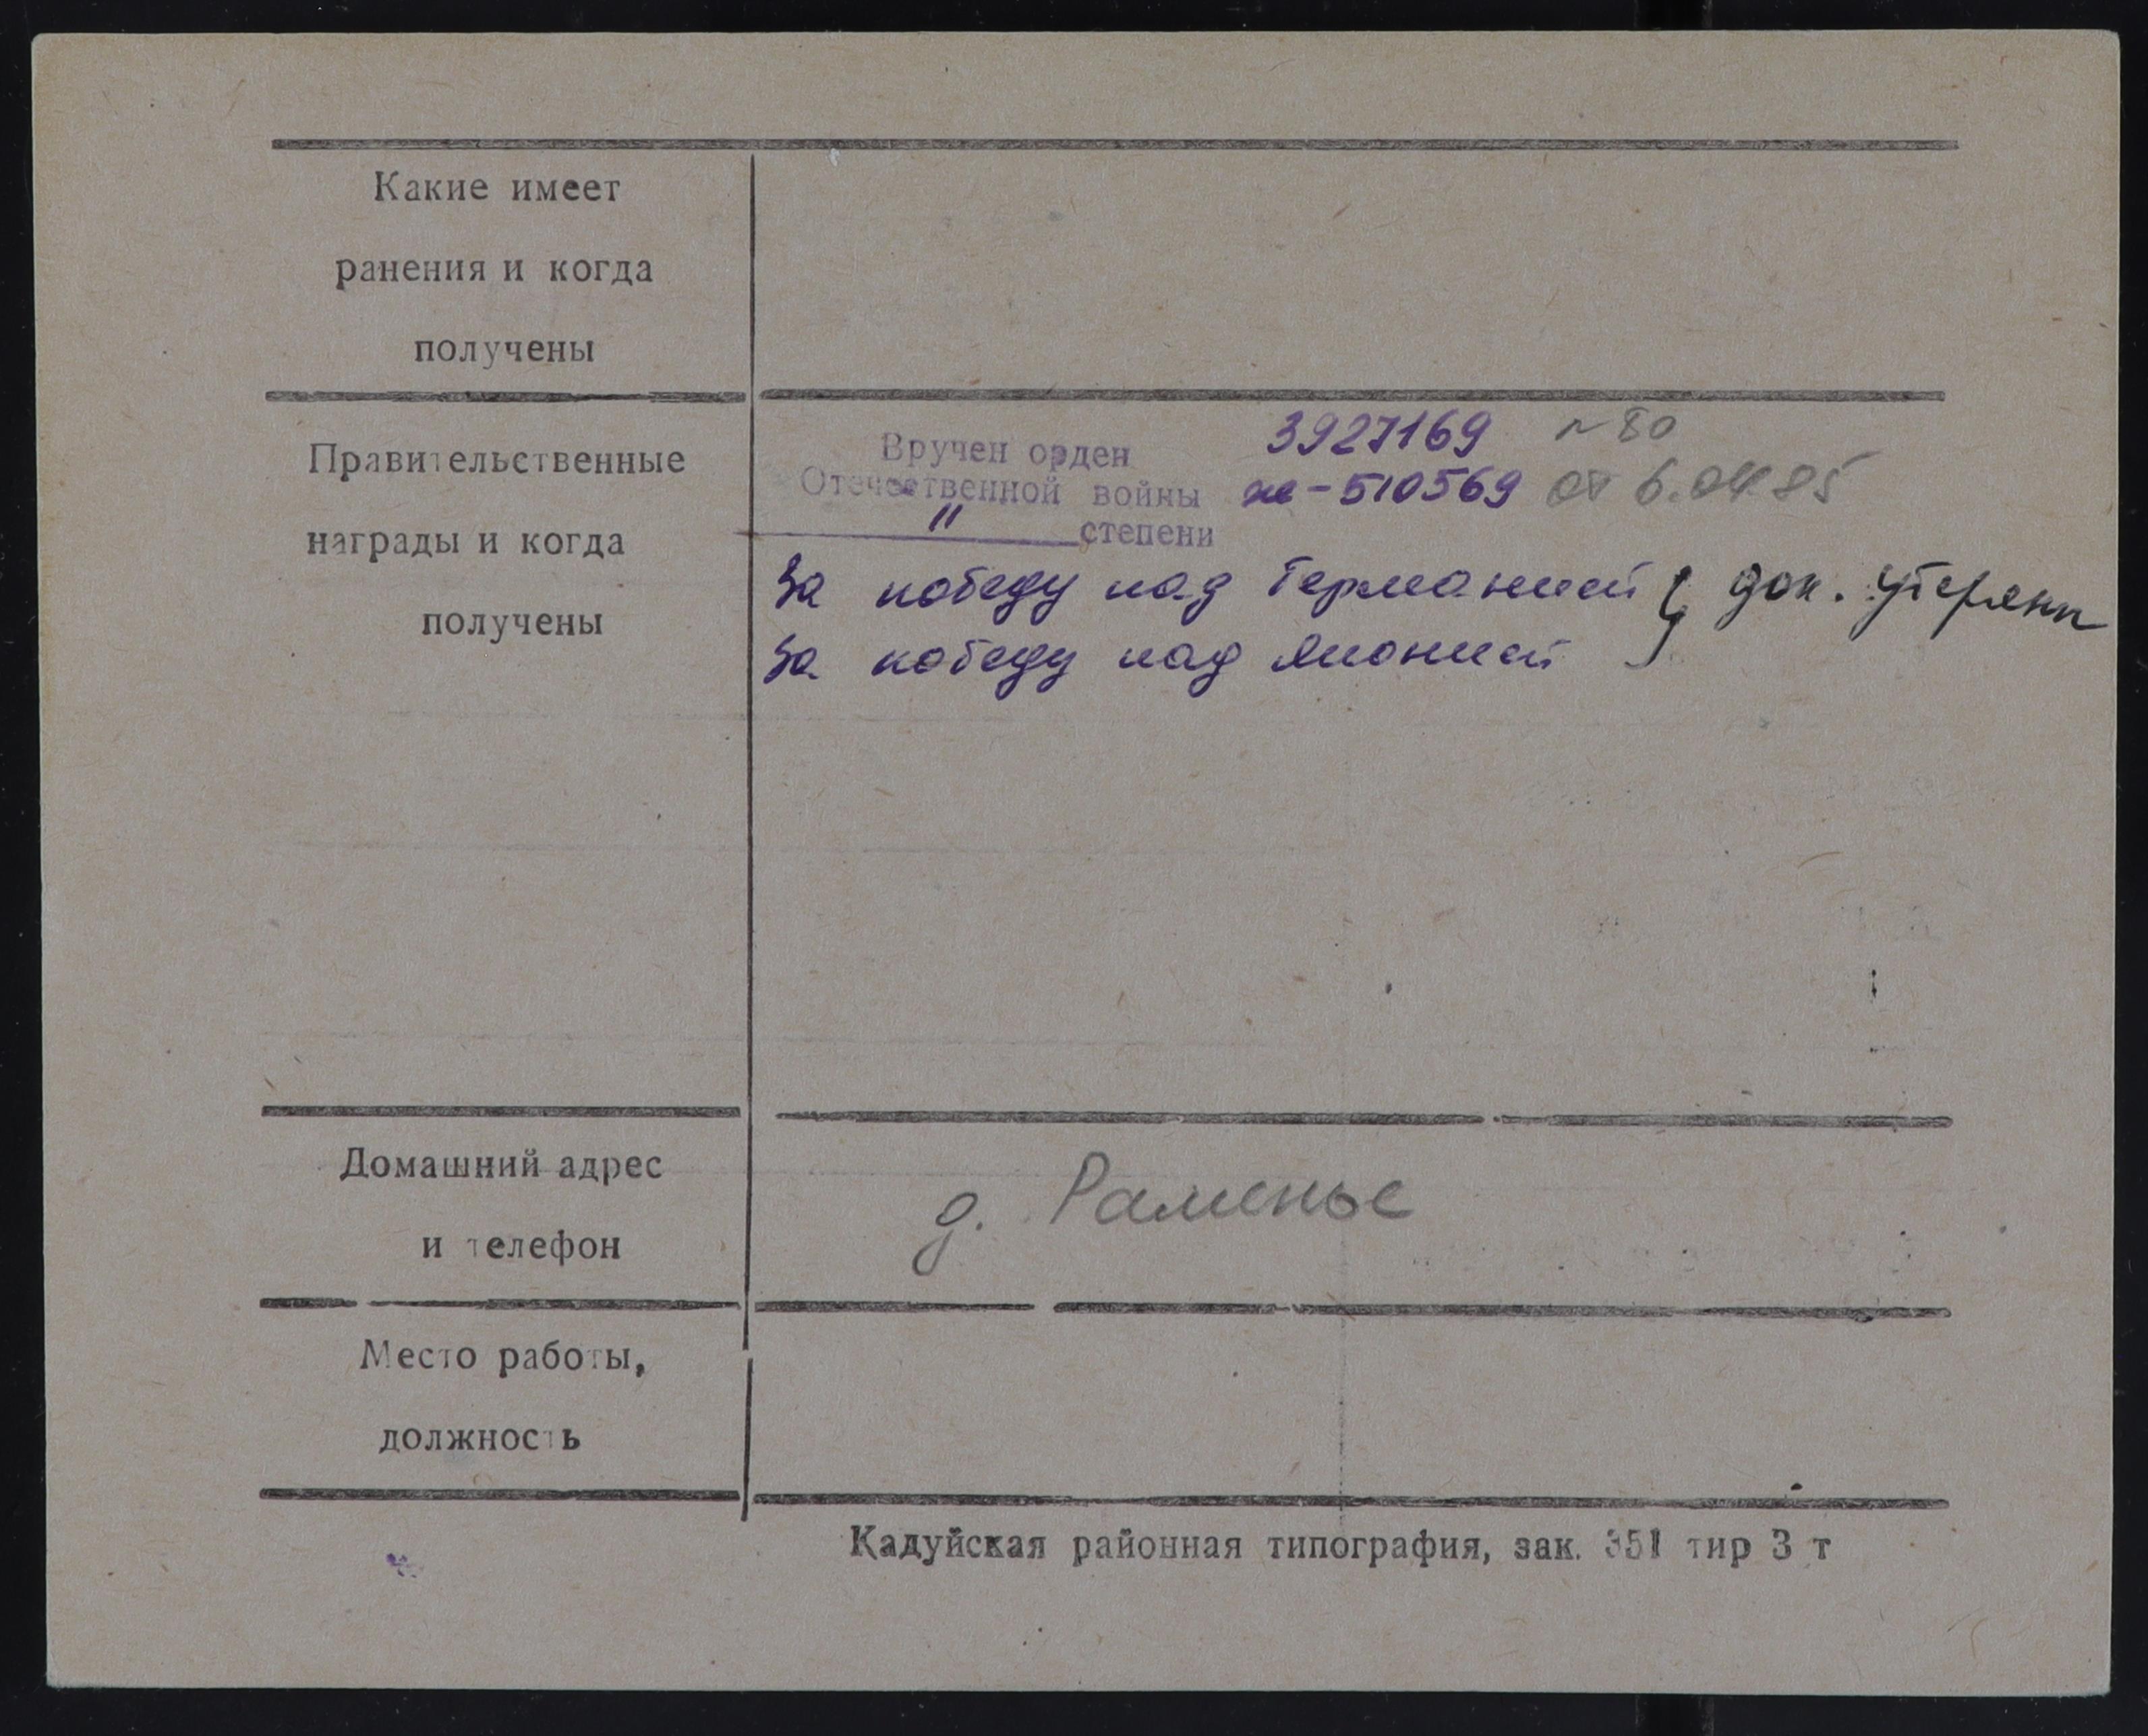 Какие имеет
ранения и когда
получены
Правительственные
награды и когда
получены
Вручен орден 3927169 N 80
Отечественной войны ж-510569 от 6.04.85
II степени
За победу над Германией } док. утеряны
За победу над Японией
Домашний адрес
и телефон
д. Раменье
Место работы,
должность
Кадуйская районная типография, зак. 351 тир 3 т